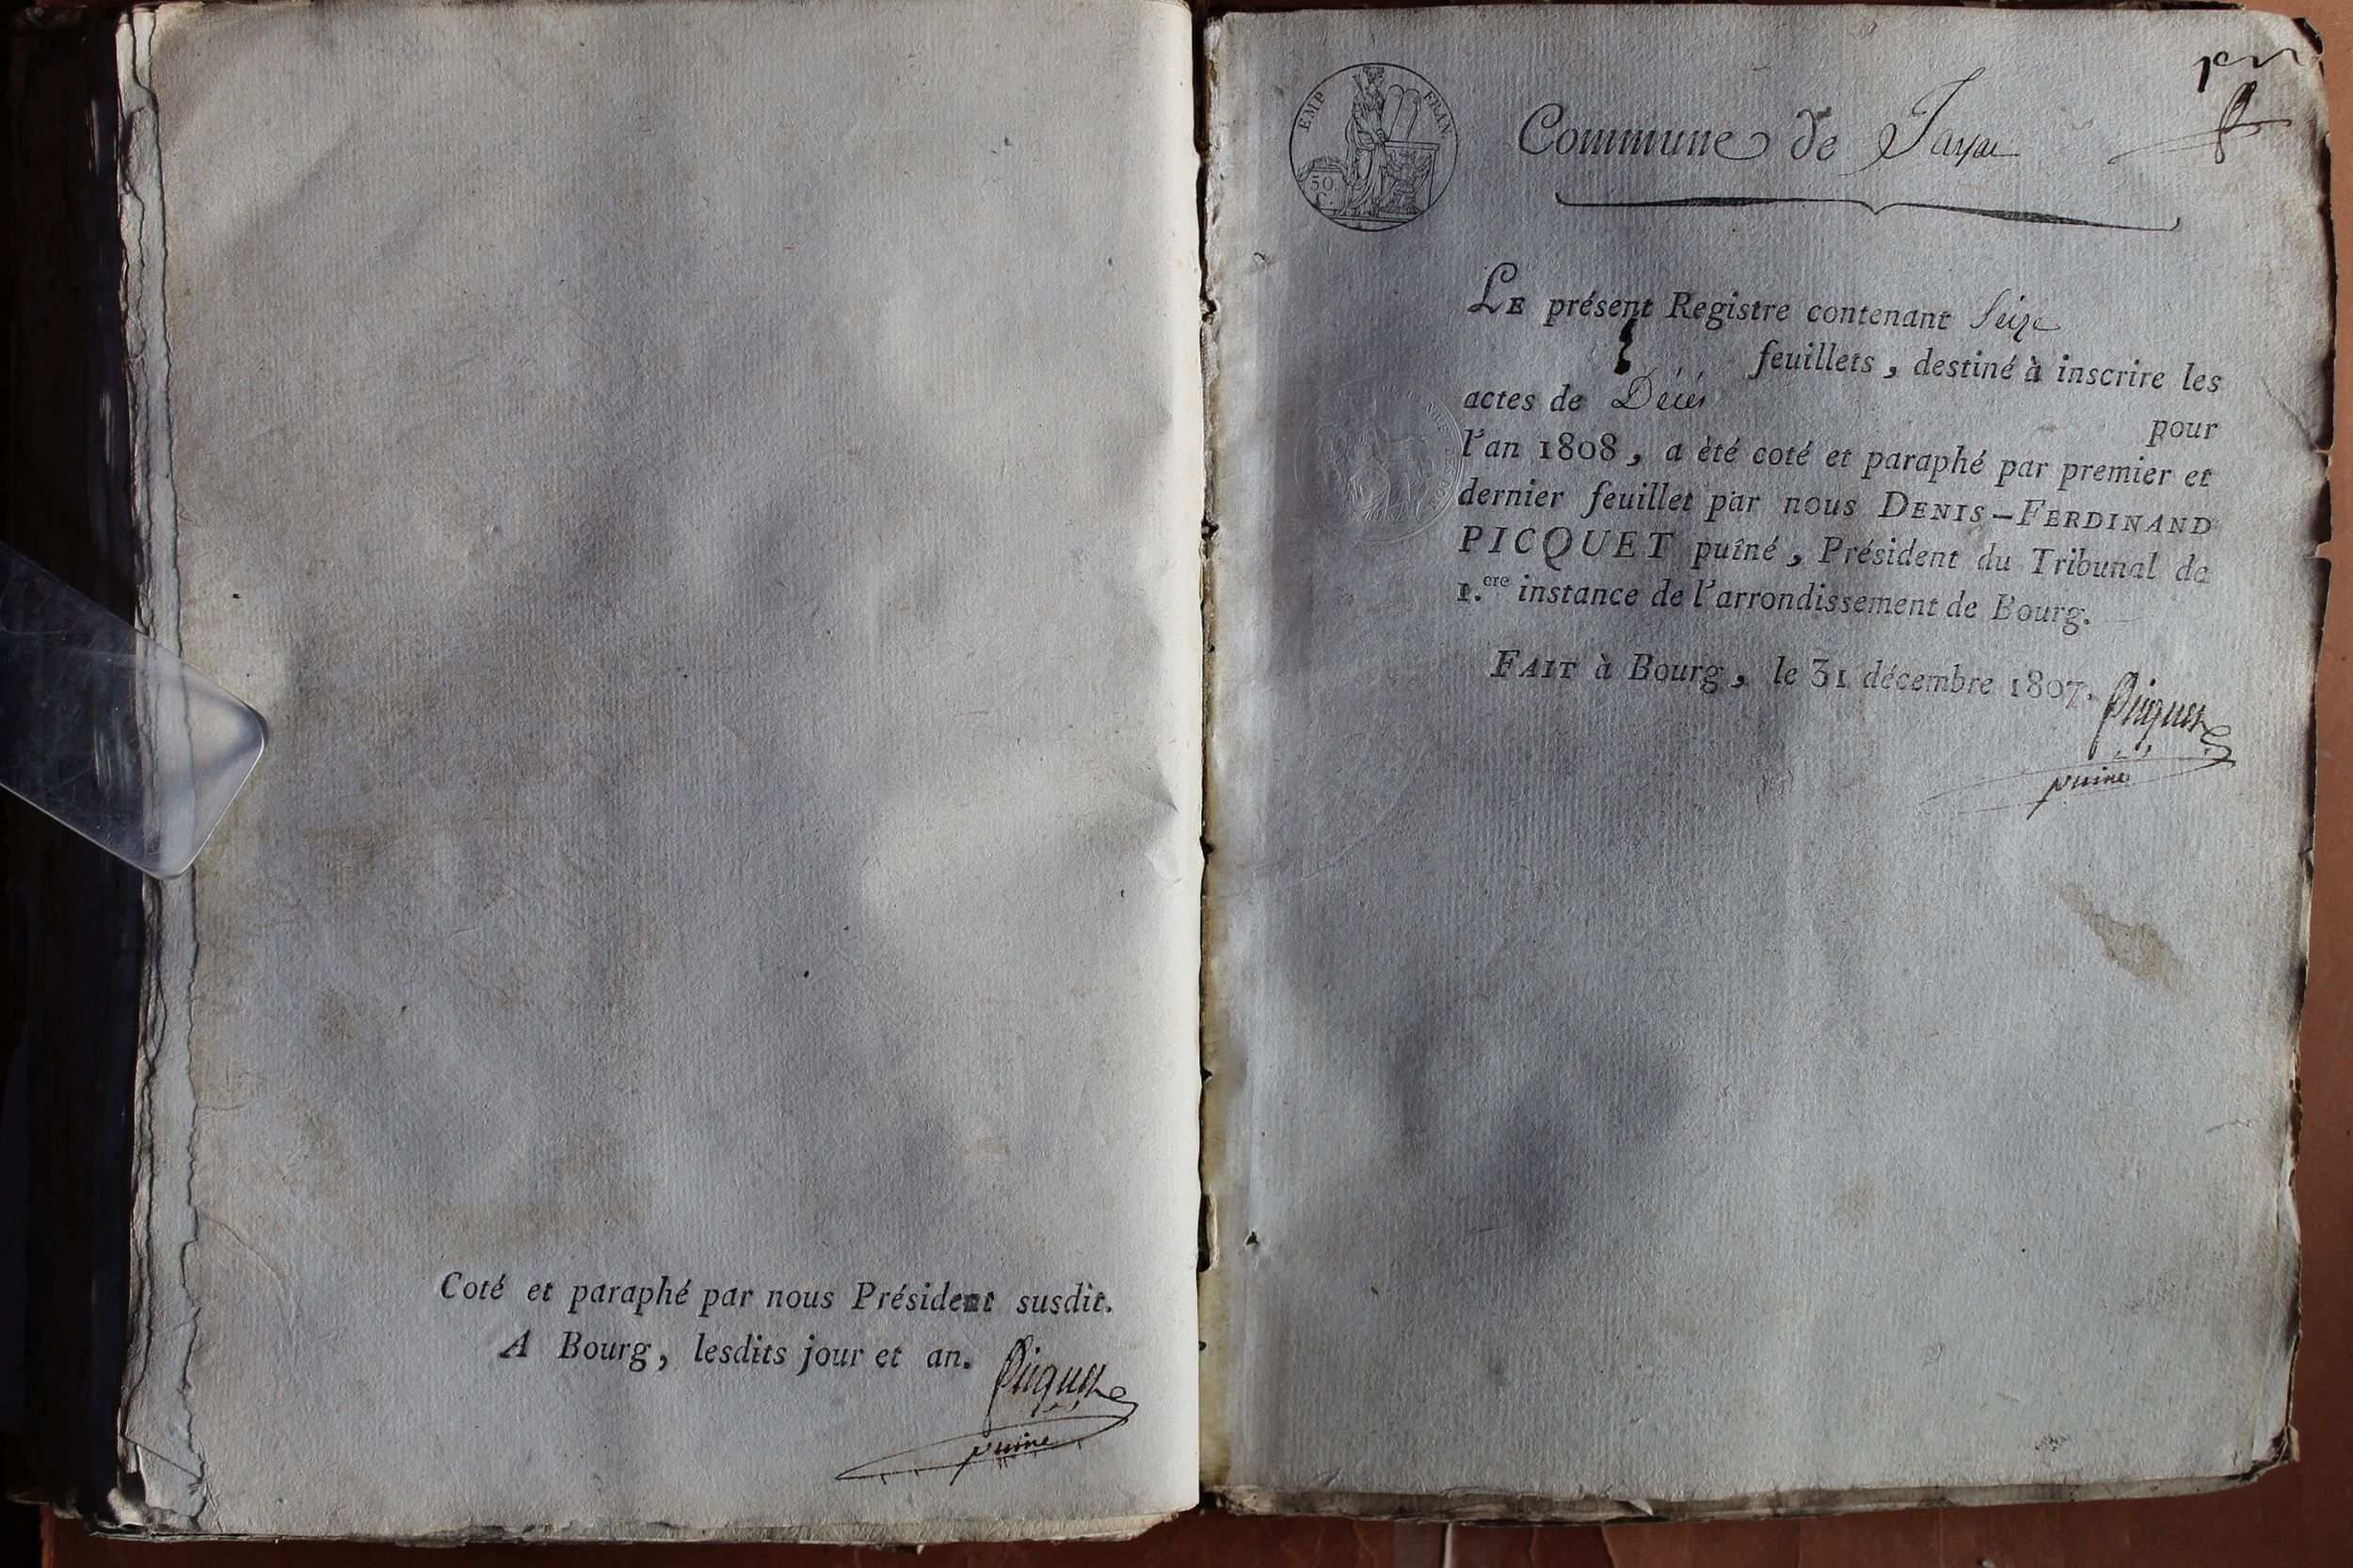 Coté et paraphé par nous Président susdit.
A Bourg, lesdits jour et an.
Picquet
puiné
EMP. FRAN.
50
C.
Commune de Jayat
pr
LE présent Registre contenant Seize
feuillets, destiné à inscrire les
actes de Décès
pour
l'an 1808, a èté coté et paraphé par premier et
dernier feuillet par nous DENIS-FERDINAND
PICQUET puîné, Président du Tribunal de
1.ere instance de l'arrondissement de Bourg.
FAIT à Bourg, le 31 décembre 1807.
Picquet
puiné